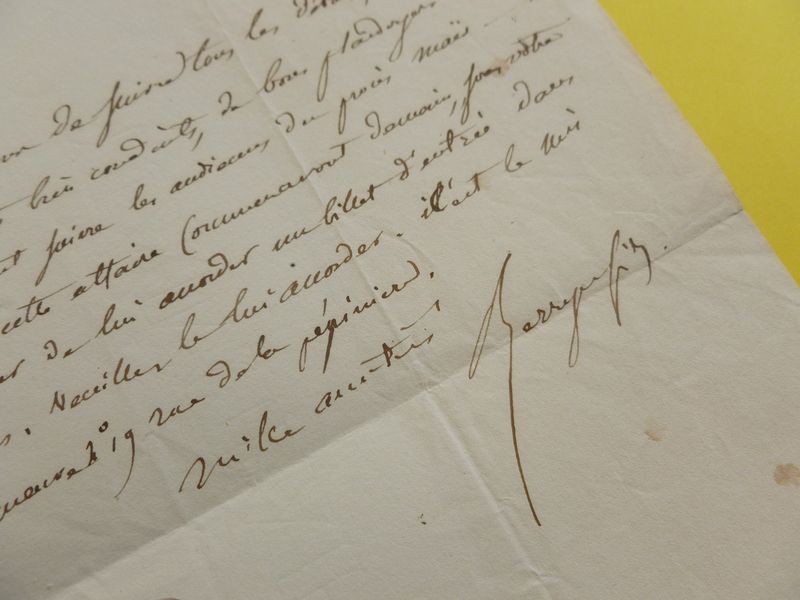 de suivre tous les
bien conduits, de bons plaidoyers
suivre les audiences du procès
cette affaire commenceront demain, votre
de lui accorder un billet d'entrée dans
. Veuillez le lui accorder. il est le
n° 19 rue de la pépinière.
mille amitiés Berryer fils.